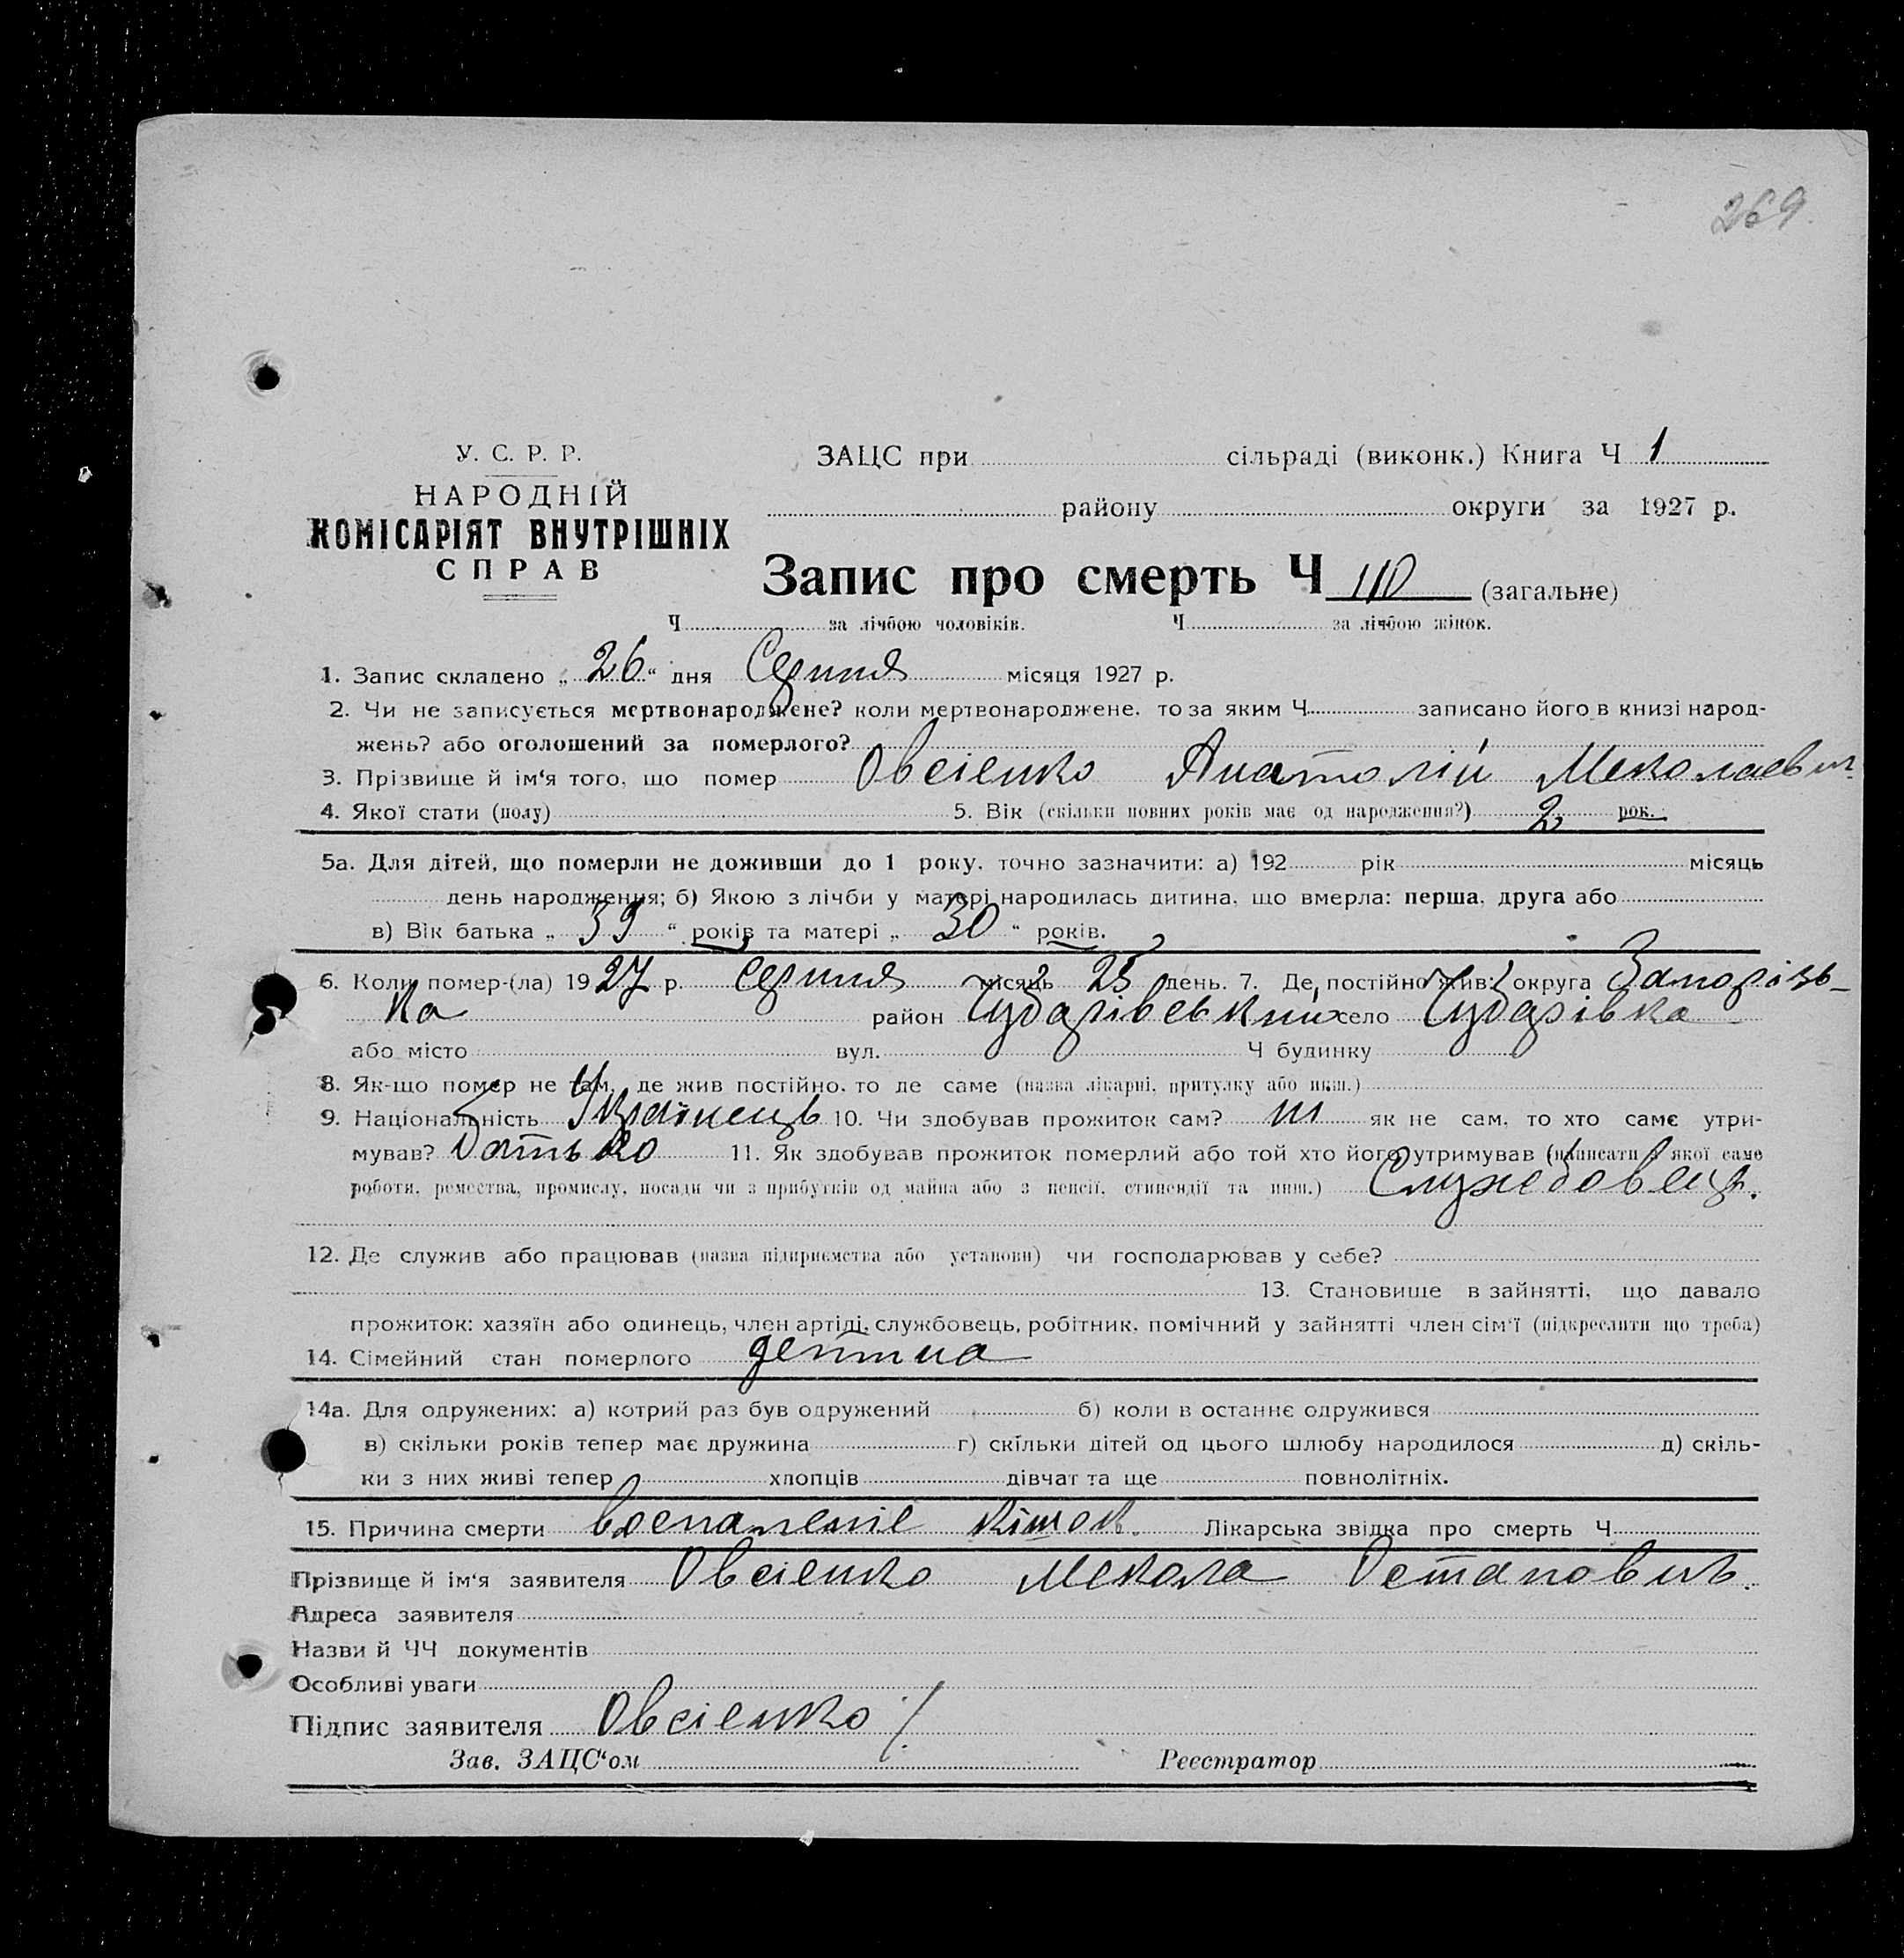 269
У. С. Р. Р.
НАРОДНІЙ
КОМІСАРІЯТ ВНУТРІШНІХ
СПРАВ
ЗАЦС при сільраді (виконк.) Книга Ч 1
району округи за 1927 р.
Запис про смерть Ч 110 (загальне)
Ч за лічбою чоловіків. Ч за лічбою жінок.
1. Запис складено „26“ дня Серпня місяця 1927 р.
2. Чи не записується мертвонароджене? коли мертвонароджене, то за яким Ч записано його в книзі народ-
жень? або оголошений за померлого?
3. Прізвище й ім‘я того, що помер Овсієнко Анатолій Меколаевич
4. Якої стати (полу) 5. Вік (скільки повних років має од народження?) 2 рок.
5а. Для дітей, що померли не доживши до 1 року, точно зазначити: а) 192 рік місяць
день народження; б) Якою з лічби у матері народилась дитина, що вмерла: перша, друга або
в) Вік батька „39“ років та матері „30“ років.
6. Коли помер-(ла) 1927 р. серпня місяць 25 день. 7. Де постійно жив: округа Запорізь-
ка район Чубарівський село Чубарівка
або місто вул. Ч будинку
8. Як-що помер не там, де жив постійно, то де саме (назва лікарні, притулку або инш.)
9. Національність Українець 10. Чи здобував прожиток сам? ні як не сам, то хто саме утри-
мував? Батько 11. Як здобував прожиток померлий або той хто його утримував (написати з якої саме
роботи, ремества, промислу, посади чи з прибутків од майна або з пенсії, стипендії та инш.) Служебовець.
12. Де служив або працював (назва підприємства або установи) чи господарював у себе?
13. Становище в зайнятті, що давало
прожиток: хазяїн або одинець, член артілі, службовець, робітник, помічний у зайнятті член сім‘ї (підкреслити що треба)
14. Сімейний стан померлого детина
14а. Для одружених: а) котрий раз був одружений б) коли в останнє одружився
в) скільки років тепер має дружина г) скільки дітей од цього шлюбу народилося д) скіль-
ки з них живі тепер хлопців дівчат та ще повнолітніх.
15. Причина смерти воспаленіе кішок. Лікарська звідка про смерть Ч
Прізвище й ім‘я заявителя Овсіенко Мекола Остапович.
Адреса заявителя
Назви й ЧЧ документів
Особливі уваги
Підпис заявителя Овсіенко
Зав. ЗАЦС‘ом Реєстратор